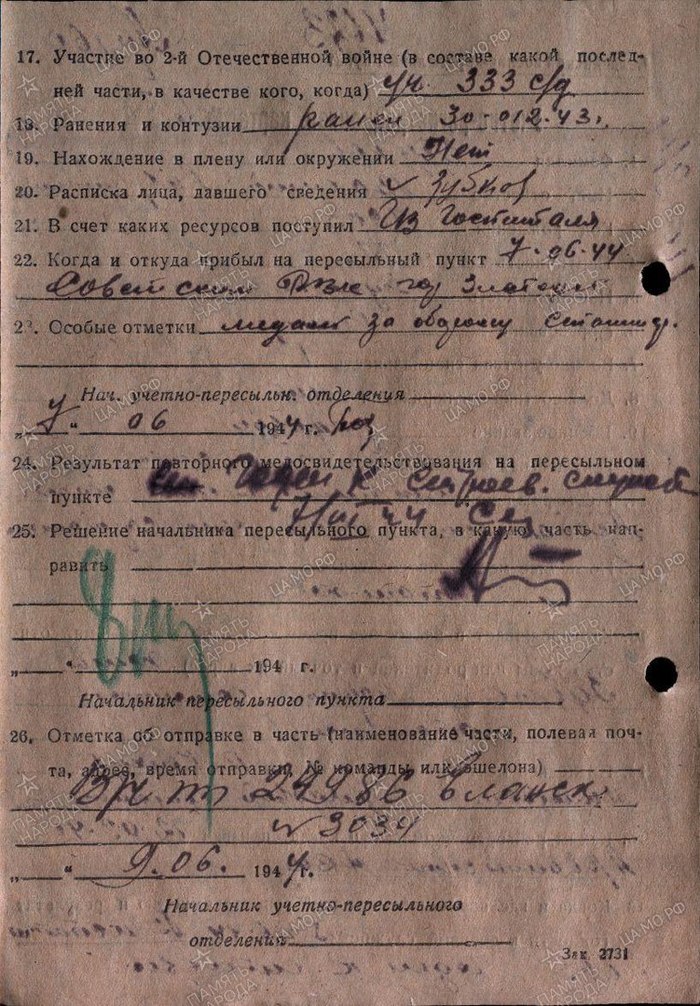 17. Участие во 2-й Отечественной войне (в составе какой послед-
ней части, в качестве кого, когда) уч. 333 с/д
18. Ранения и контузии ранен 30-012.43.
19. Нахождение в плену или окружении Нет
20. Расписка лица, давшего сведения Зубков
21. В счет каких ресурсов поступил Из Госпиталя
22. Когда и откуда прибыл на пересыльный пункт 7.06.44
Советским
23. Особые отметки медаль за оборону сталингр.
Нач. учетно-пересыльн. отделения
„7“ 06 1944 г.
24. Результат повторного медосвидетельствования на пересыльном
пункте Годен к строев. службе
7/VI 44
25. Решение начальника пересыльного пункта, в какую часть нап-
равить
„ “ 194 г.
Начальник пересыльного пункта
26. Отметка об отправке в часть (наименование части, полевая поч-
та, адрес, время отправки, № команды или эшелона)
24986
№ 3034
„ “ 9.06. 1944г.
Начальник учетно-пересыльного
отделения
Зак. 2731
ПАМЯТЬ НАРОДА
ЦАМО.РФ